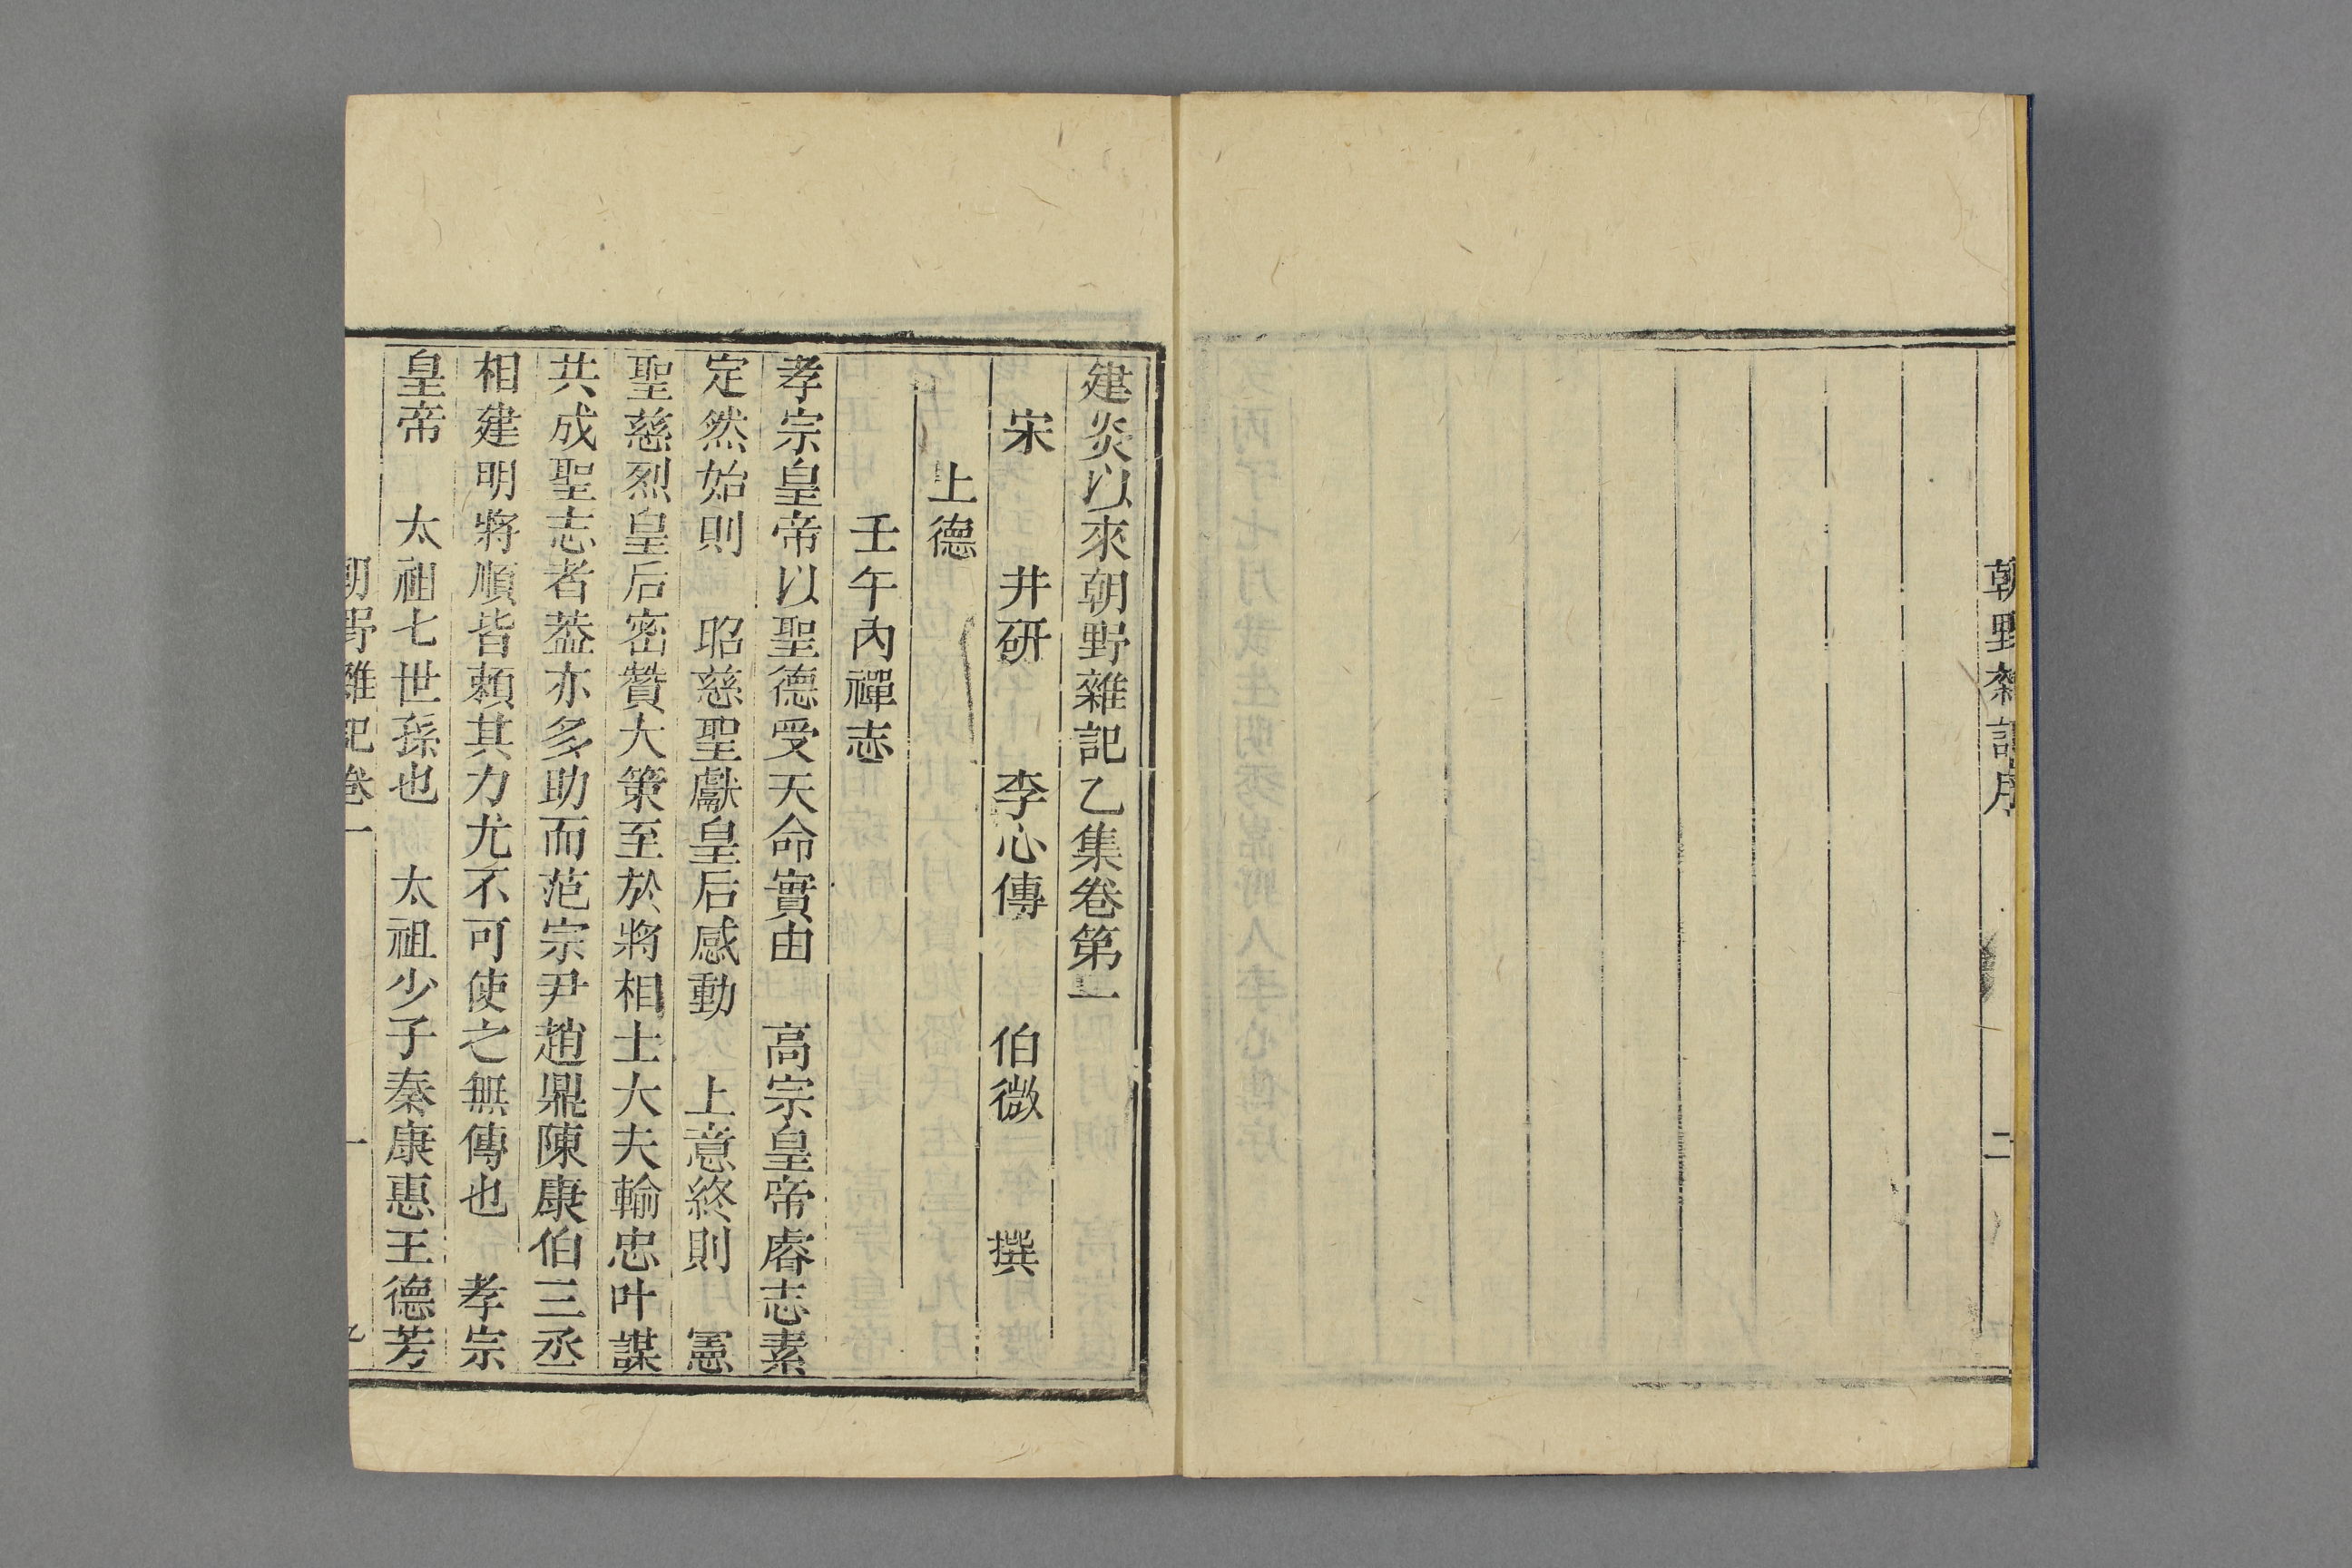 朝野雜記序
二
建炎以來朝野雜記乙集卷第一
宋 井研 李心傳 伯微 撰
上德
壬午內禪志
孝宗皇帝以聖德受天命實由 高宗皇帝睿志素
定然始則 昭慈聖獻皇后感動 上意終則 憲
聖慈烈皇后密贊大策至於將相士大夫輸忠叶謀
共成聖志者葢亦多助而范宗尹趙鼎陳康伯三丞
相建明將順皆賴其力尤不可使之無傳也 孝宗
皇帝 太祖七世孫也 太祖少子秦康惠王德芳
朝野雜記卷一
一